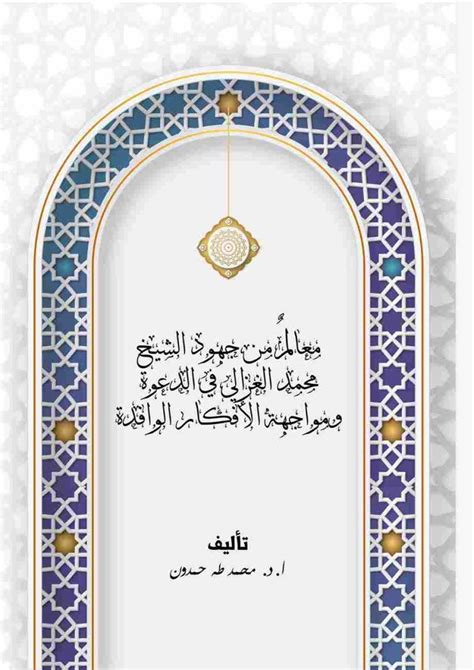 معالمٌ من جهود الشيخ
محمد الغزالي في الدعوة
ومواجهة الأفكار الوافدة
تأليف
ا. د. محمد طه حمدون